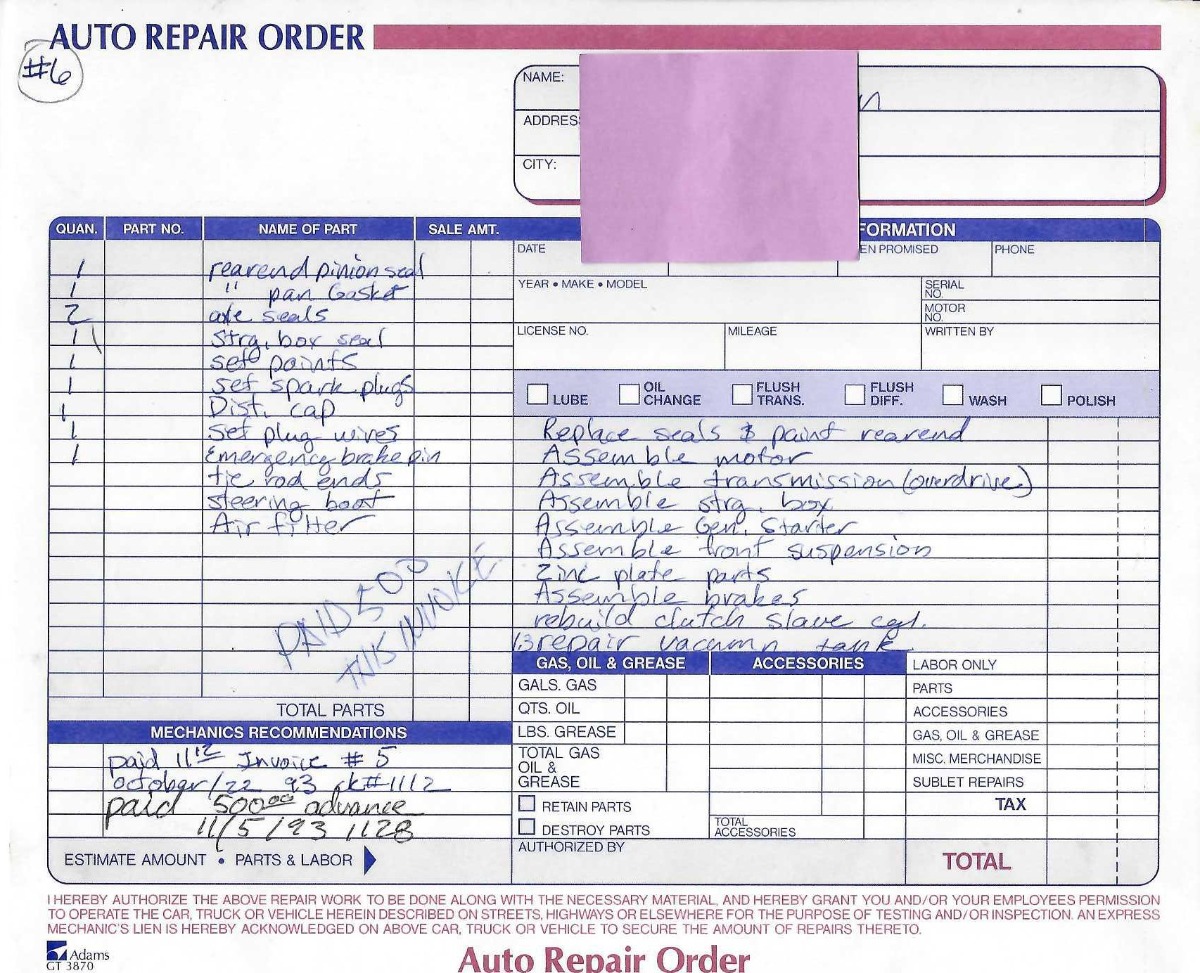 AUTO REPAIR ORDER
#6
NAME:
ADDRES
CITY:
QUAN. PART NO. NAME OF PART SALE AMT. FORMATION
DATE EN PROMISED PHONE
1 rearend pinion seal
1 " pan Gasket
2 axle seals
1 Strg. box seal
1 set points
1 set spark plugs
1 Dist. cap
1 set plug wires
1 Emergency brake pin
tie rod ends
steering boot
Air filter
PAID 500
THIS INVOICE
TOTAL PARTS
YEAR • MAKE • MODEL SERIAL NO.
MOTOR NO.
LICENSE NO. MILEAGE WRITTEN BY
LUBE OIL CHANGE FLUSH TRANS. FLUSH DIFF. WASH POLISH
Replace seals & paint rearend
Assemble motor
Assemble transmission (overdrive)
Assemble strg. box
Assemble Gen. Starter
Assemble front suspension
Zinc plate parts
Assemble brakes
rebuild clutch slave cyl.
repair vacumn tank
GAS, OIL & GREASE ACCESSORIES LABOR ONLY
GALS. GAS PARTS
QTS. OIL ACCESSORIES
LBS. GREASE GAS, OIL & GREASE
TOTAL GAS OIL & GREASE MISC. MERCHANDISE
SUBLET REPAIRS
RETAIN PARTS TAX
DESTROY PARTS TOTAL ACCESSORIES
AUTHORIZED BY TOTAL
MECHANICS RECOMMENDATIONS
paid 11 12 Invoice # 5
october/22 93 ck#1112
paid 500 00 advance
11/5/93 1128
ESTIMATE AMOUNT • PARTS & LABOR
I HEREBY AUTHORIZE THE ABOVE REPAIR WORK TO BE DONE ALONG WITH THE NECESSARY MATERIAL, AND HEREBY GRANT YOU AND/OR YOUR EMPLOYEES PERMISSION
TO OPERATE THE CAR, TRUCK OR VEHICLE HEREIN DESCRIBED ON STREETS, HIGHWAYS OR ELSEWHERE FOR THE PURPOSE OF TESTING AND/OR INSPECTION. AN EXPRESS
MECHANIC'S LIEN IS HEREBY ACKNOWLEDGED ON ABOVE CAR, TRUCK OR VEHICLE TO SECURE THE AMOUNT OF REPAIRS THERETO.
Adams
GT 3870
Auto Repair Order